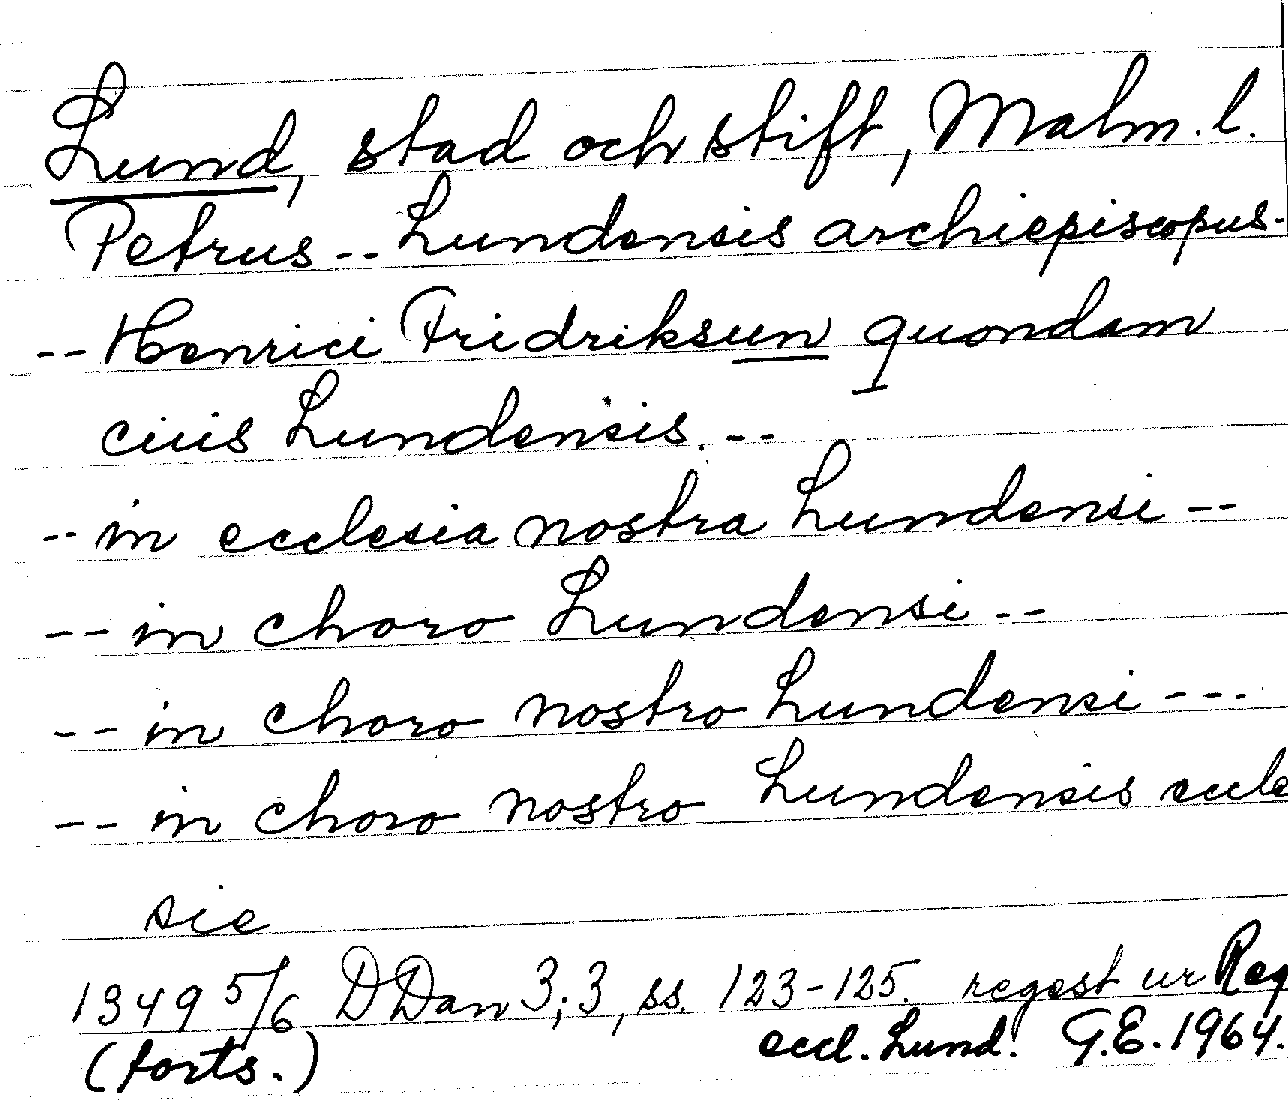 Lund, stad och stift, Malm. l.
Petrus -- Lundensis archiepiscopus -
-- Henrici Fridriksun quondam
ciuis Lundensis. --
-- in ecclesia nostra Lundensi --
-- in choro Lundensi --
-- in choro nostro Lundensi ---
-- in choro nostro Lundensis eccle
sie
1349 5/6 DDan 3;3, ss. 123-125. regest ur Reg
(forts.) eccl. Lund. G.E. 1964.